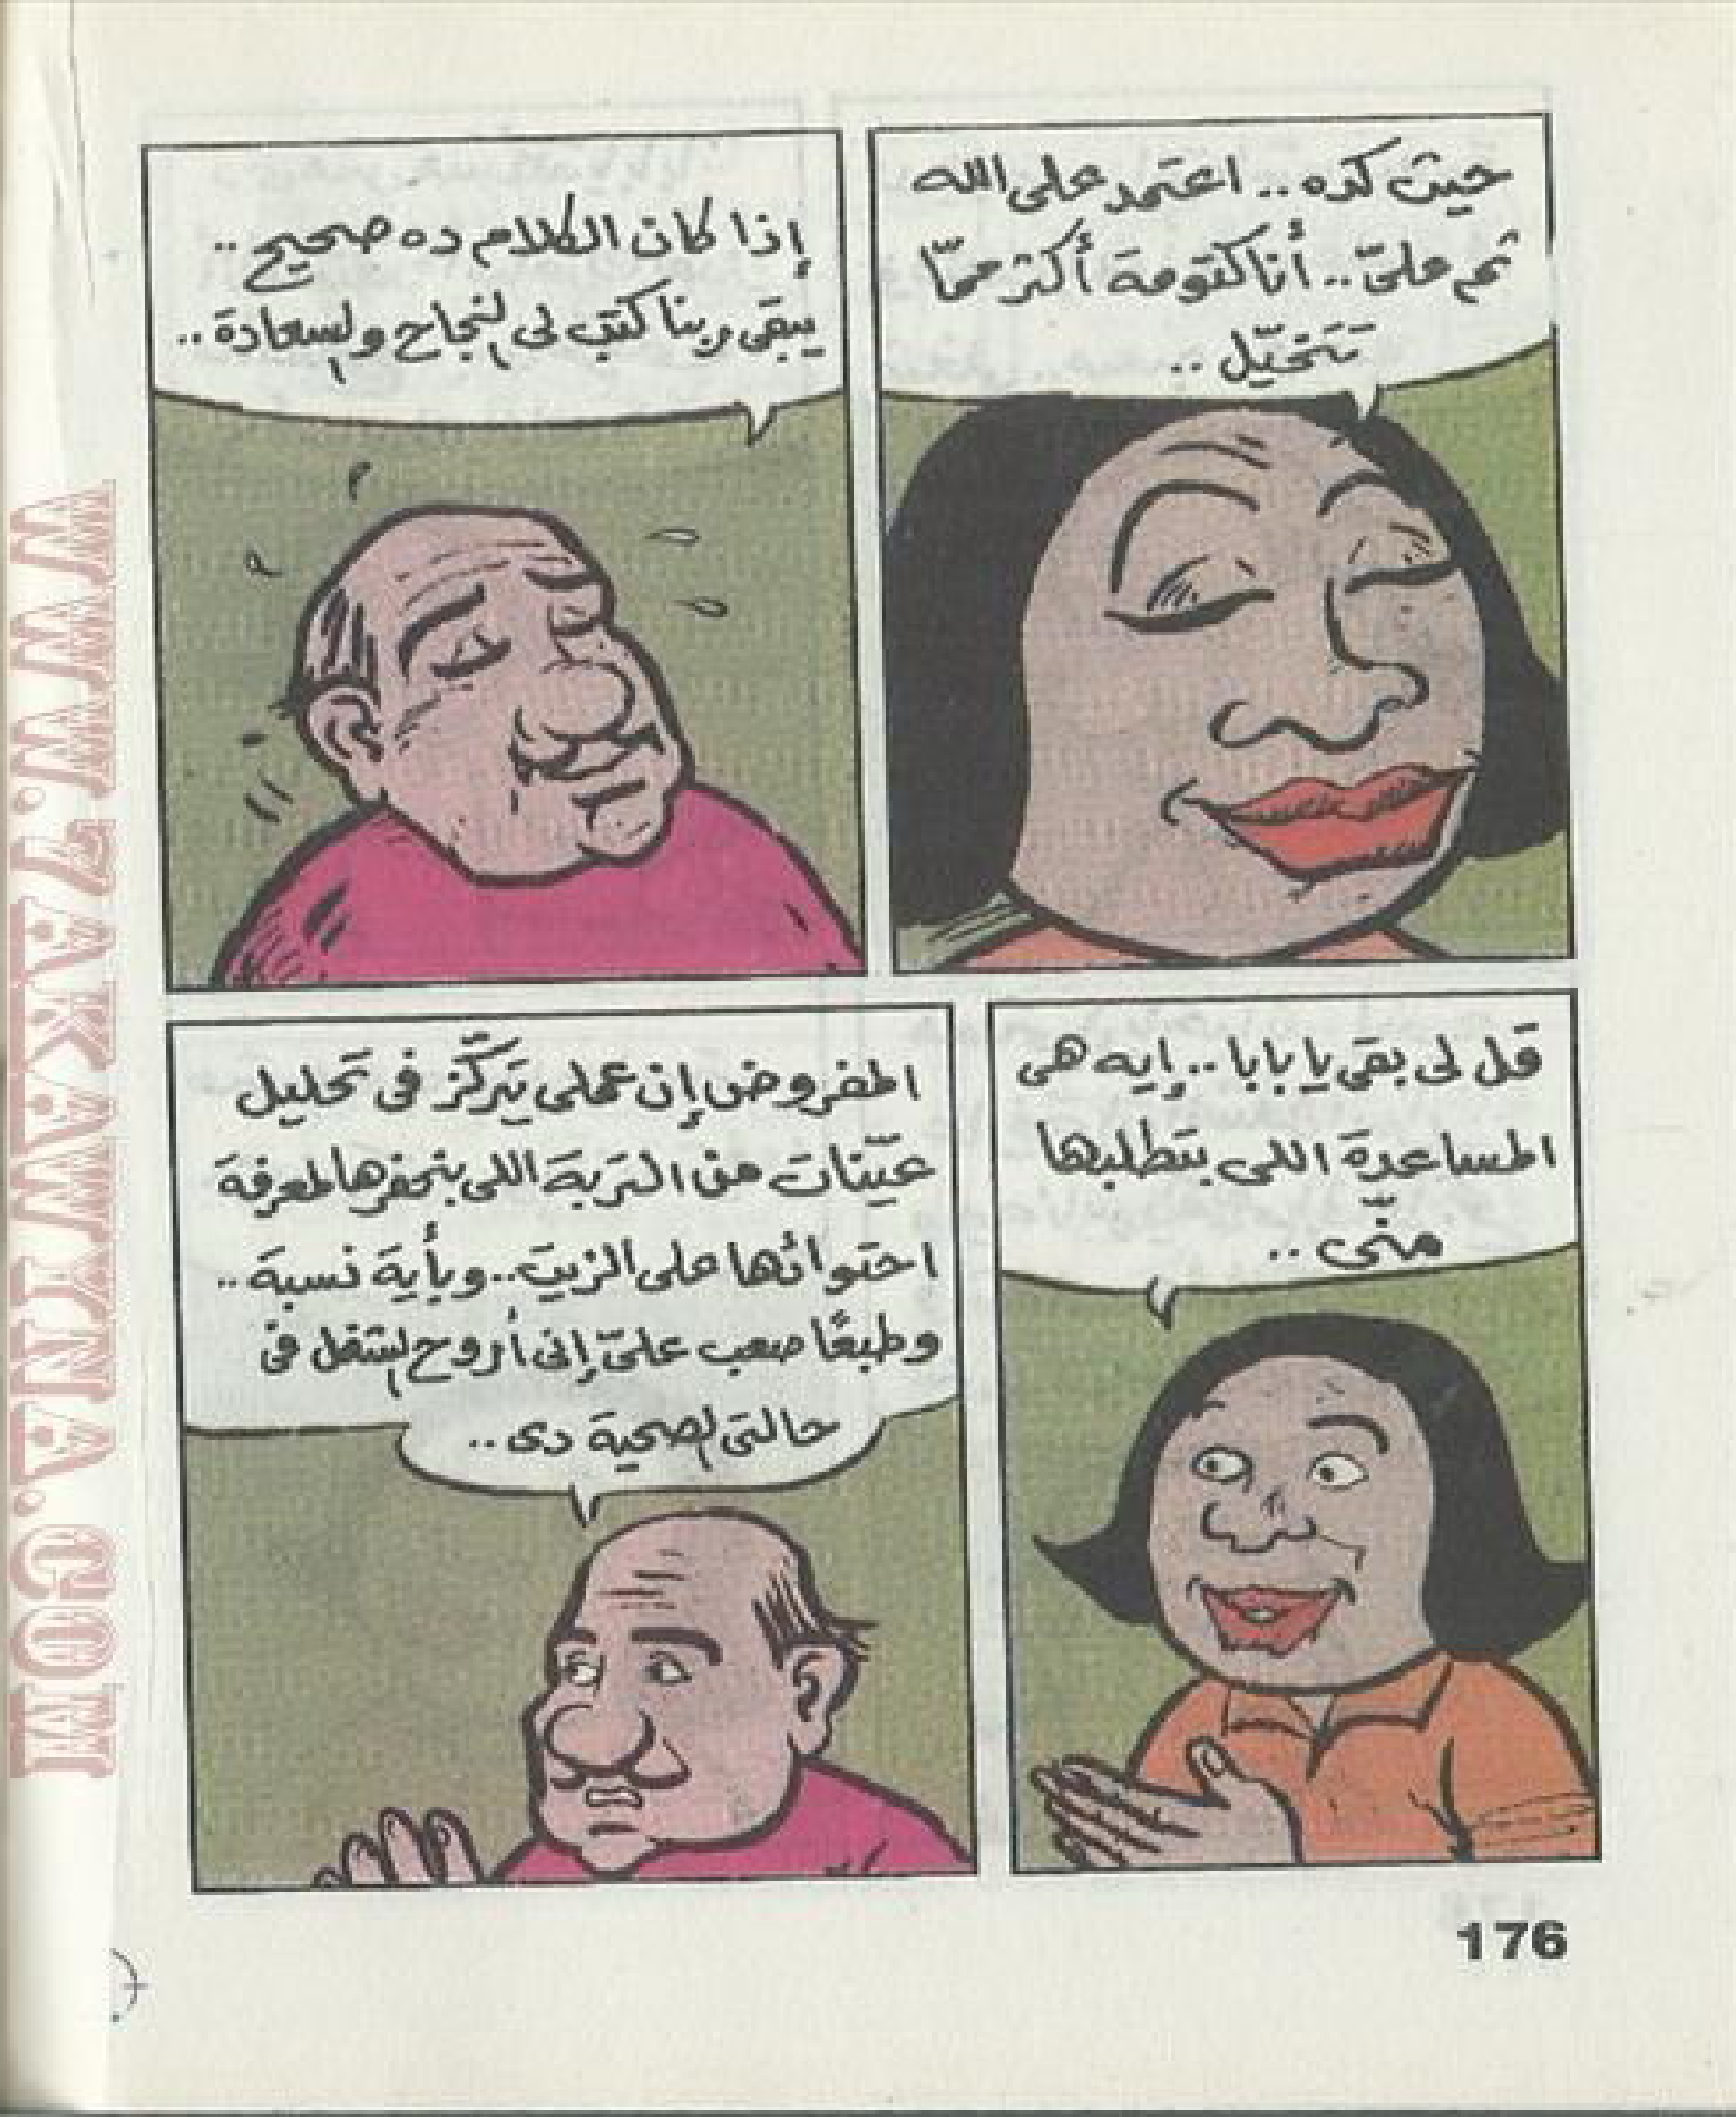 حيث كده .. اعتمد على الله
ثم علىّ .. أنا كتومة أكثر ممّا
تتخيّل ..
إذا كان الكلام ده صحيح ..
يبقى ربنا كتب لى النجاح والسعادة ..
قل لى بقى يا بابا .. إيه هى
المساعدة اللى بتطلبها
منّى ..
المفروض إن عملى يتركّز فى تحليل
عيّنات من التربة اللى بنحفرها لمعرفة
احتوائها على الزيت .. وبأية نسبة ..
وطبعًا صعب علىّ إنى أروح اشتغل فى
حالتى الصحية دى ..
176
WWW.7AKAWINNA.COM